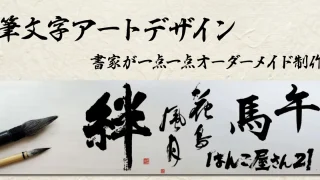 筆文字アートデザイン
書家が一点一点オーダーメイド制作
絆
花鳥
風月
馬
午
はんこ屋さん21